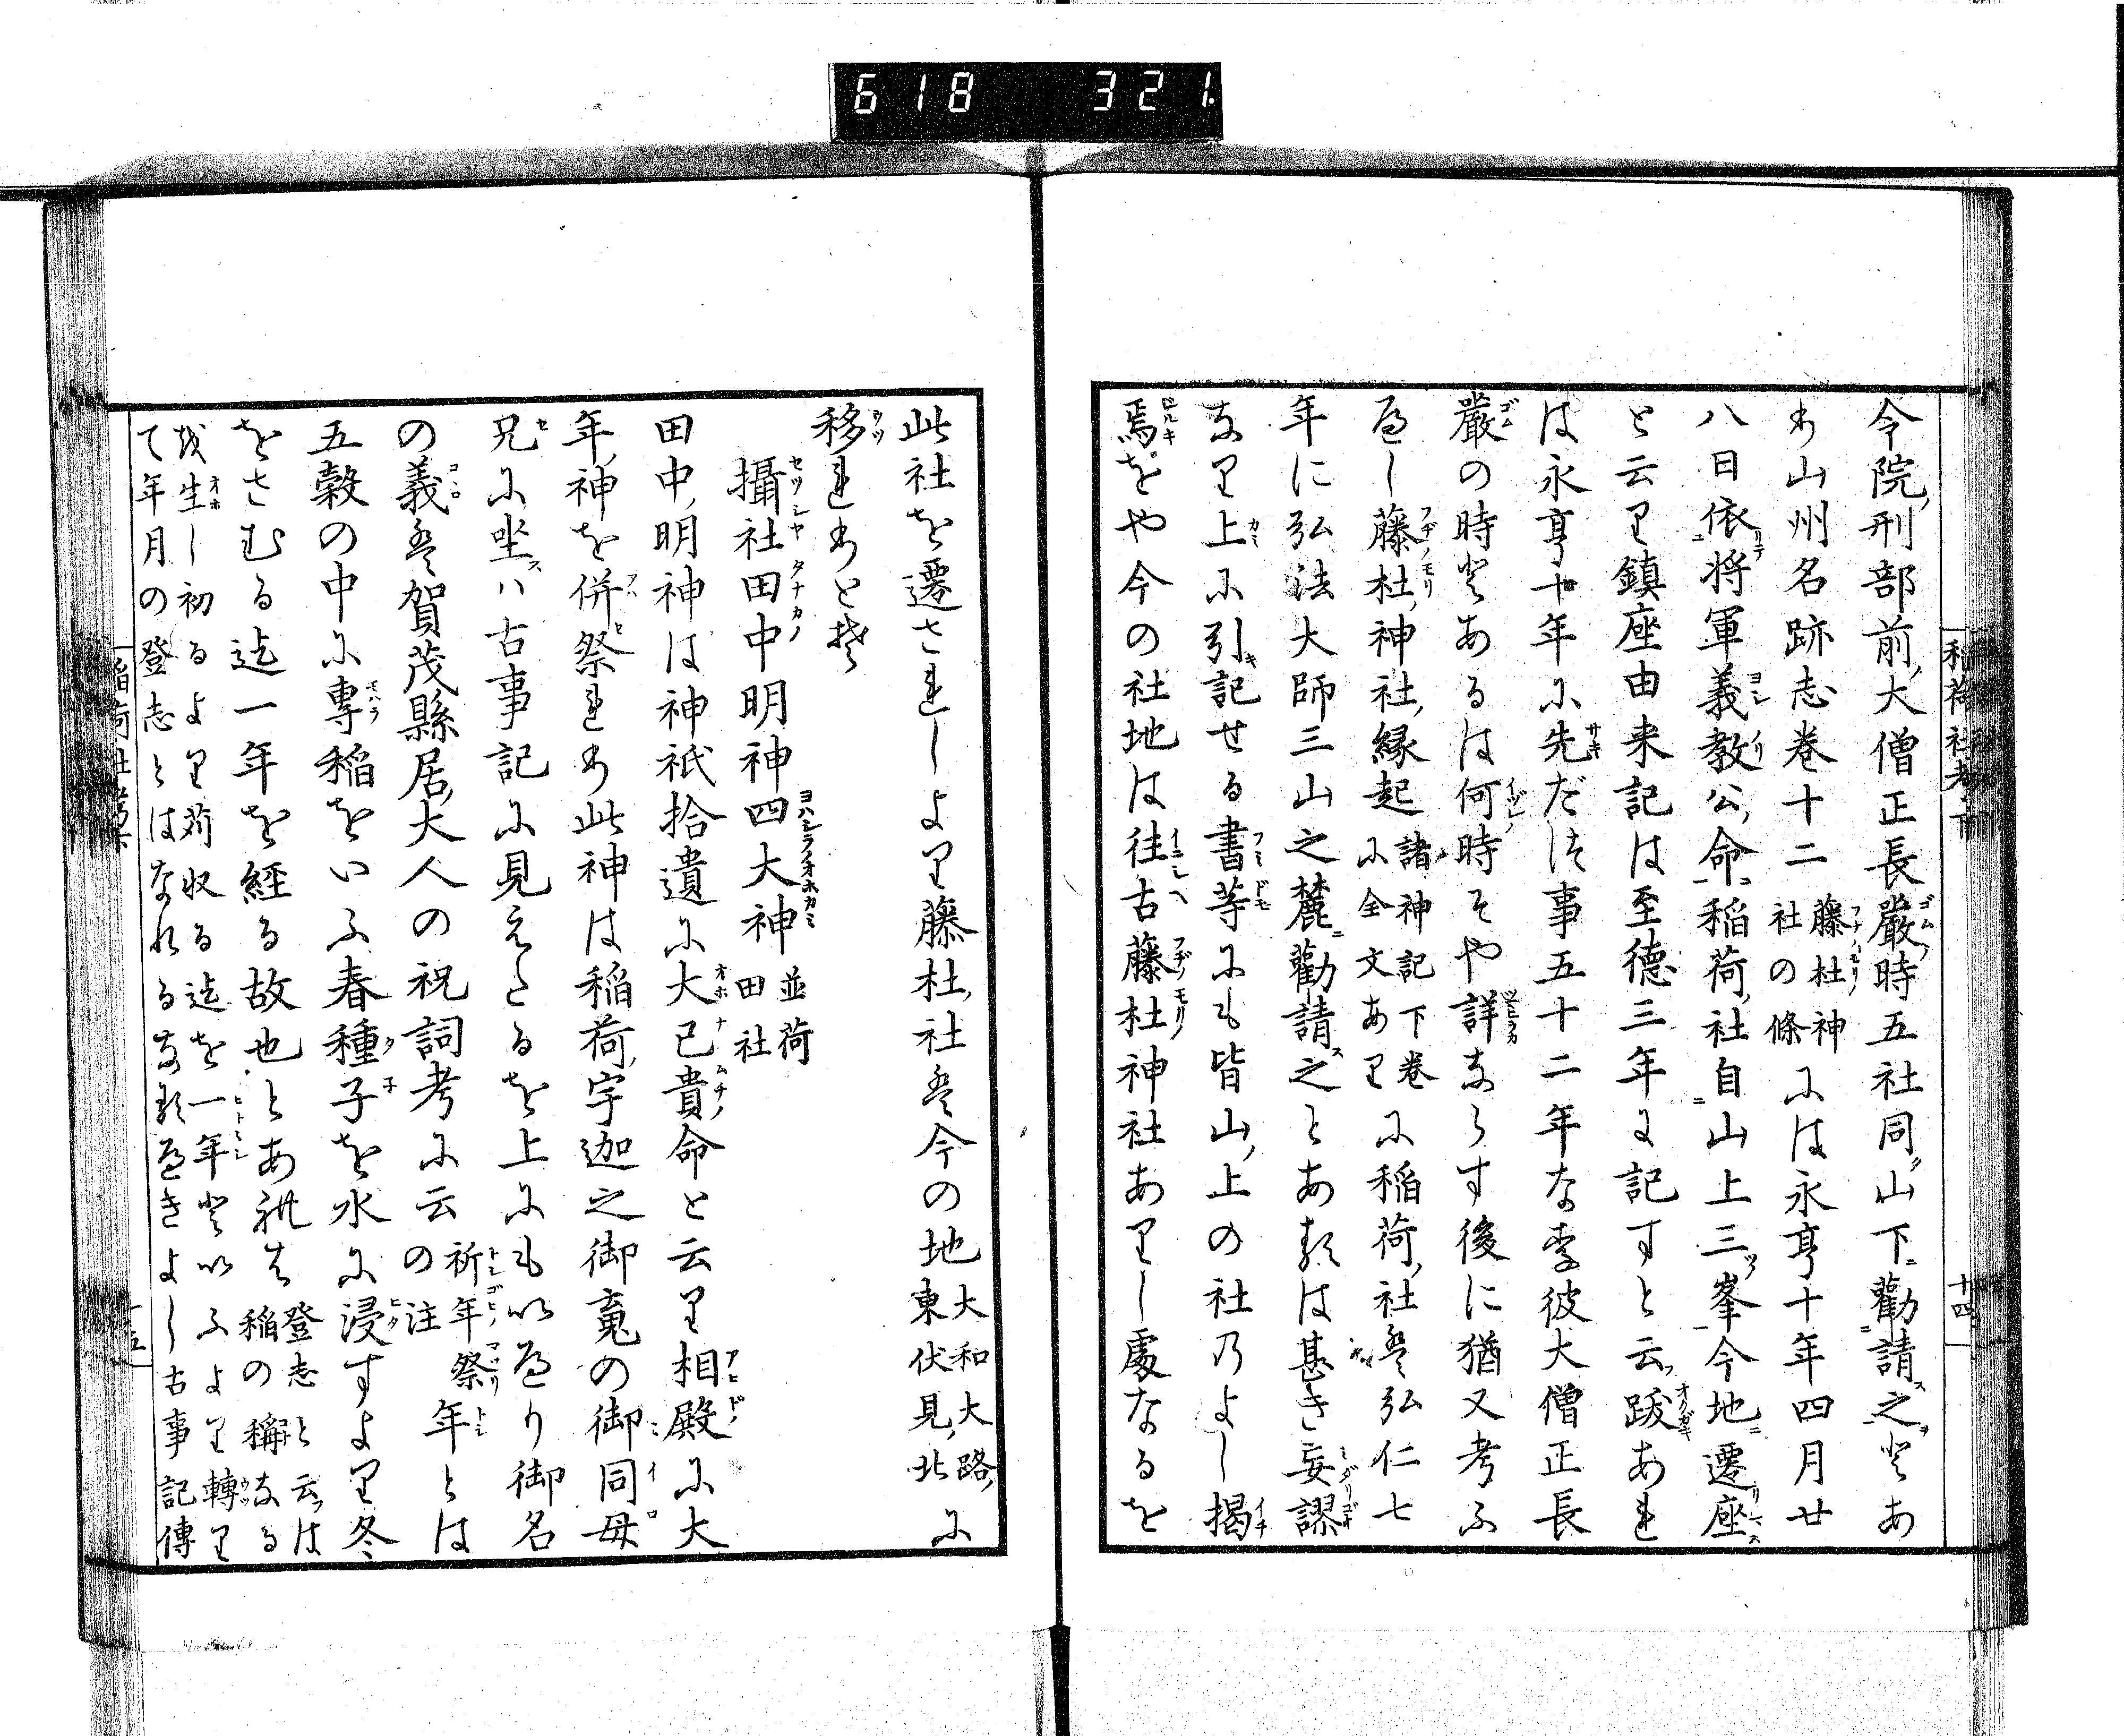 618 321
稲荷社考下
十四
今院刑部前大僧正長嚴時五社同山下勸請之とあ
り山州名跡志巻十二藤杜神社の條には永享十年四月廿
八日依将軍義教公命稲荷社自山上三峯今地遷座
と云り鎮座由来記は至徳三年に記すと云跋あれ
は永享十年に先だつ事五十二年なり彼大僧正長
嚴の時とあるは何時そや詳ならす後に猶又考ふ
べし藤杜神社縁起諸神記下巻に全文ありに稲荷社は弘仁七
年に弘法大師三山之麓勸請之とあるは甚き妄謬
なり上に引記せる書等にも皆山上の社乃よし掲
焉をや今の社地は往古藤杜神社ありし處なるを
此社を遷されしより藤杜社は今の地大和大路東伏見北に
移れりとそ
攝社田中明神四大神並荷田社
田中明神は神祇拾遺に大己貴命と云り相殿に大
年神を併祭れり此神は稲荷宇迦之御䰟の御同母
兄に坐ハ古事記に見えたるを上にも以へり御名
の義は賀茂縣居大人の祝詞考に云祈年祭の注年とは
五穀の中に専稲をいふ春種子を水に浸すより冬
をさむる迄一年を経る故也とあれは登志と云は稲の稱なる
或生し初るより苅収る迄を一年といふより轉り
て年月の登志とはなれるなるべきよし古事記傳
稲荷社考下